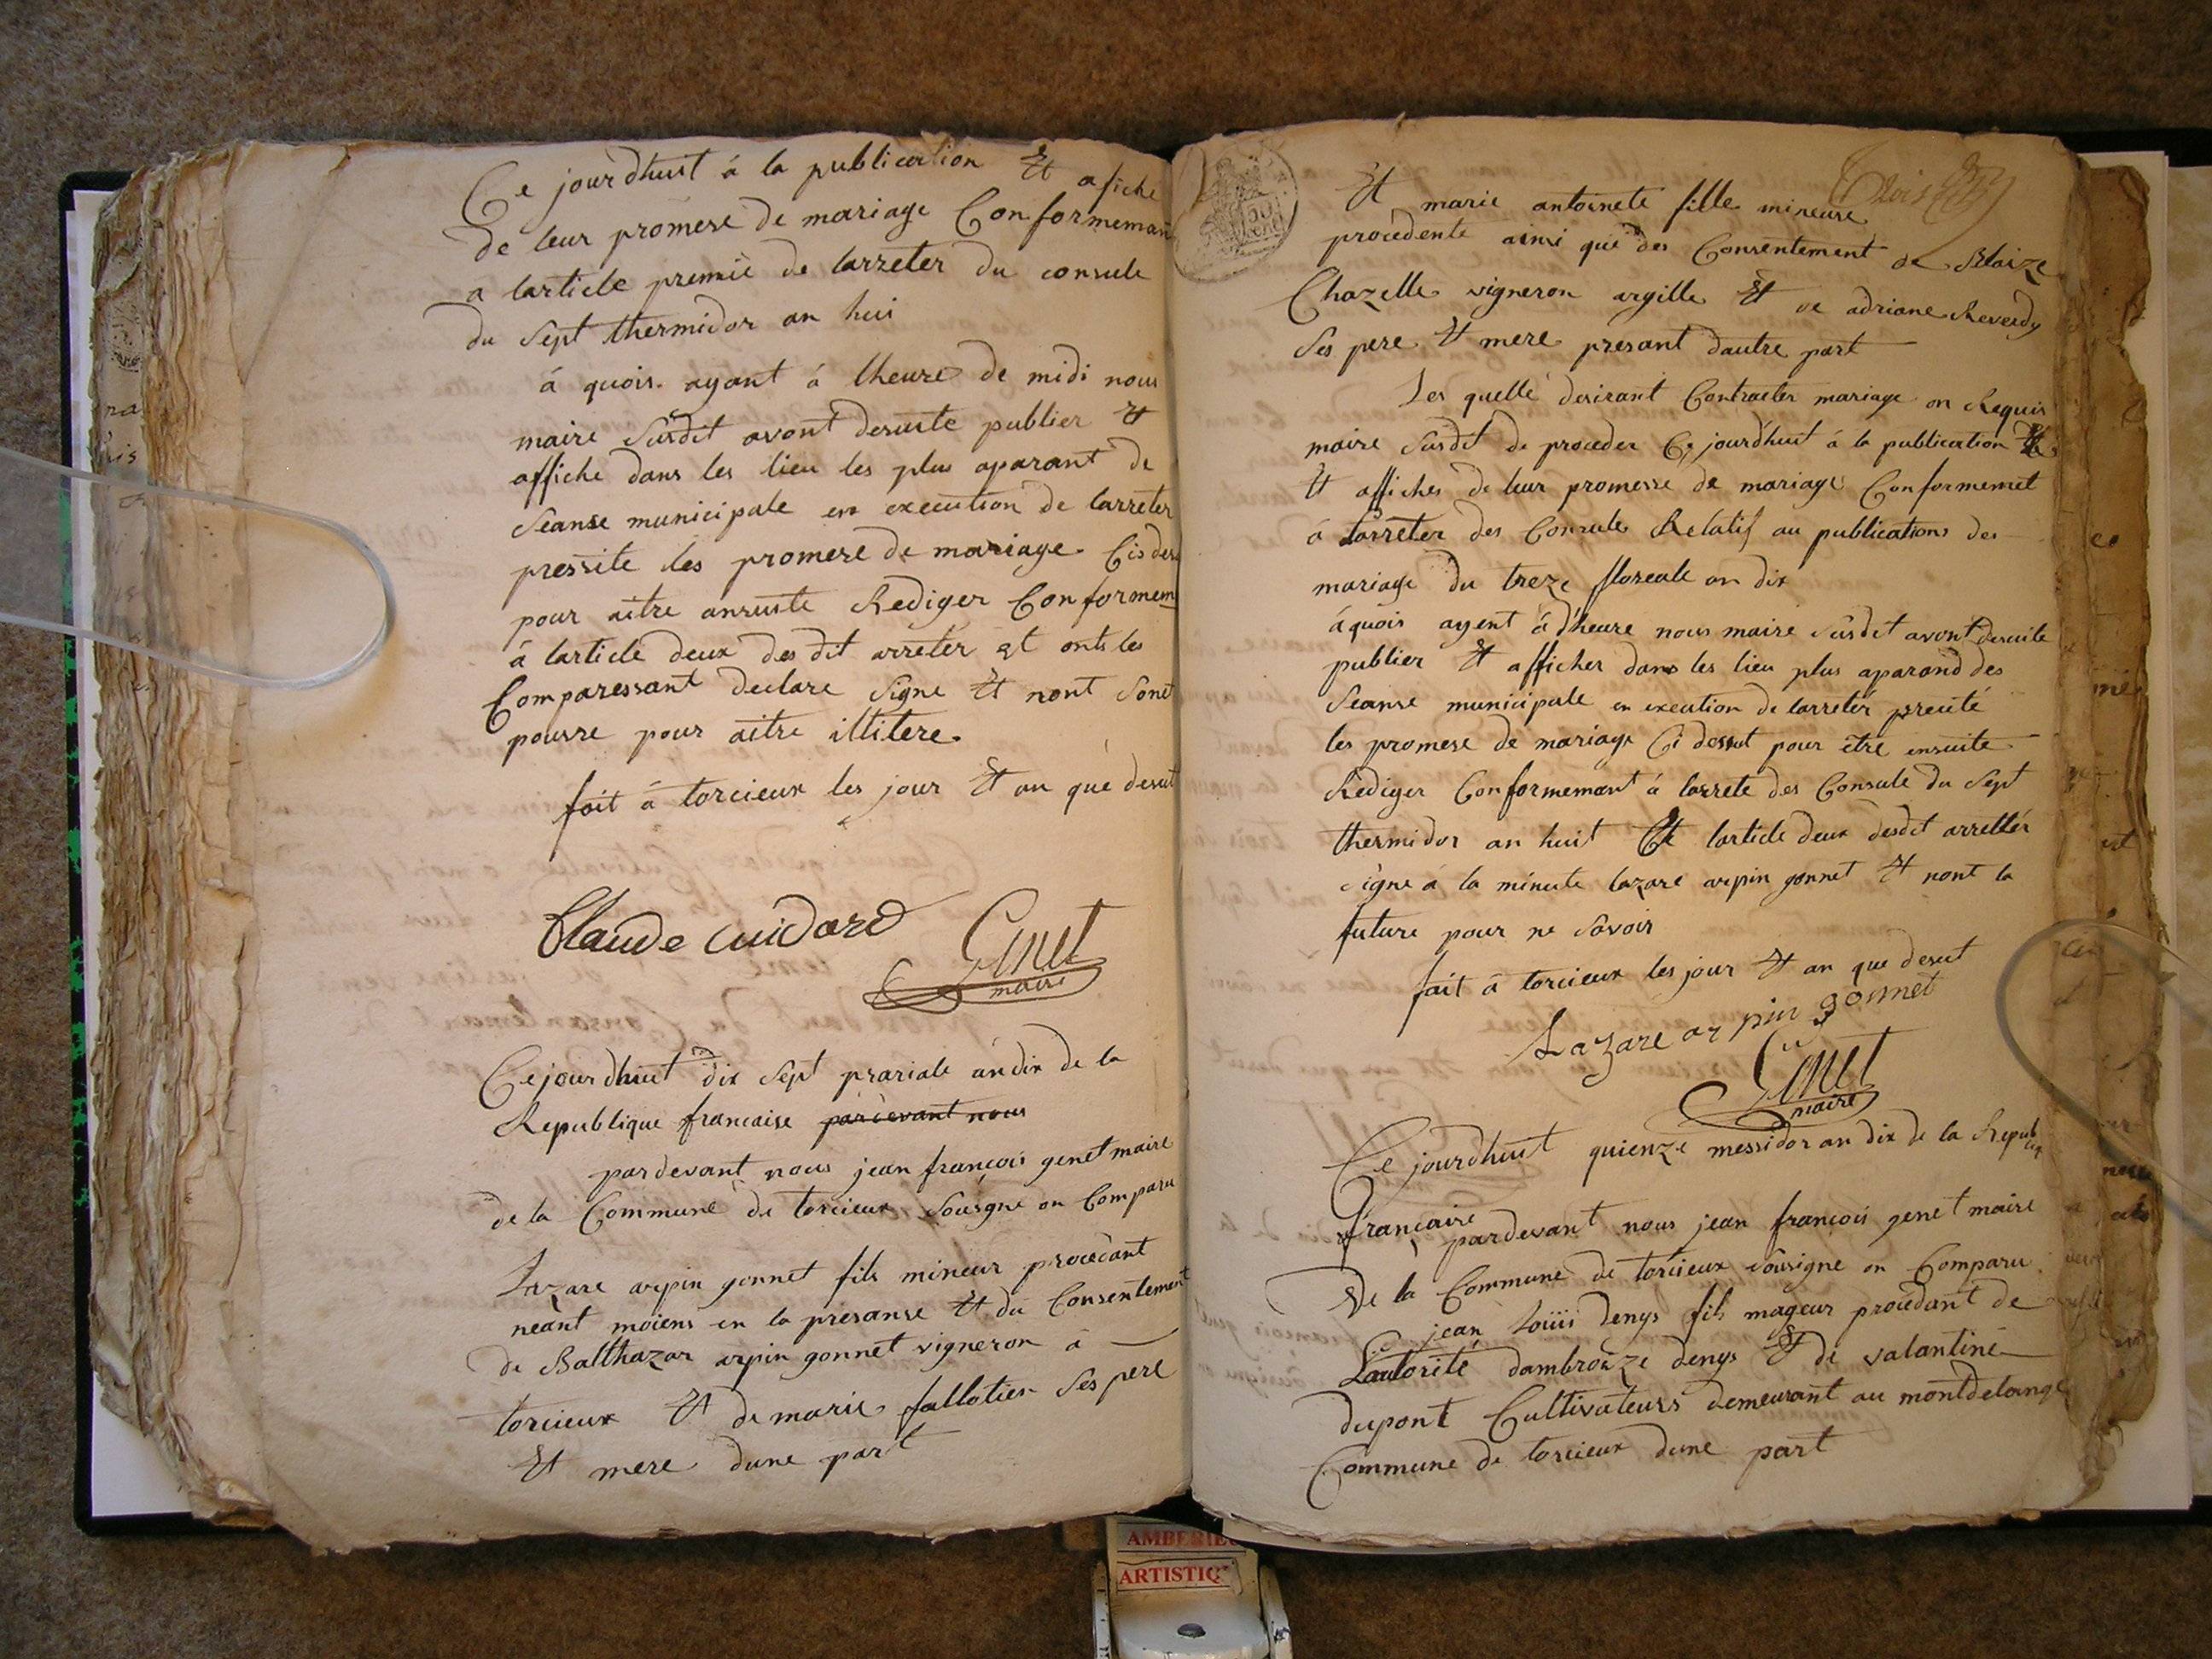 Ce jourdhuit á la publication Et afiche
de leur promese de mariage Conformemant
a larticle premie de larreter du consule
du Sept thermidor an hui
á quois ayant á lheure de midi nous
maire Susdit avont desuite publier Et
affiche dans les lieu les plus aparant de
Seanse municipale en execution de larreter
pressite les promese de mariage Cisdes
pour aitre ansuite Rediger Conformem
á larticle deux des dit arreter et onts les
Comparessant declare Signe Et nont
pour aitre illitere.
fait á torcieux les jour Et an que desut
Claude cuidard
Genet
maire
Ce jourdhuit dix Sept prariale an dix de la
Republique francaise pardevant nous
pardevant nous jean françois genet maire
de la Commune de torcieux Sousigne on Comparu
Lazare arpin gonnet fils mineur procedant
neant moiens en la presanse Et du Consentement
de Balthazar arpin gonnet vigneron á
torcieux Et de marie fallotier Ses pere
Et mere dune part
Et marie antoinete fille mineure
procedente ainsi que des Consentement de Blaize
Chazelle vigneron argille Et de adriane Reverdy
Ses pere Et mere presant dautre part
Les quelle desirant Contracter mariage on Requis
maire Susdit de proceder Ce jourdhuit á la publication
Et affiches de leur promesse de mariage Conformemet
á larreter des Consule Relatif au publications des
mariage du treze floreale an dix
á quois ayent á dheure nous maire Susdit avont desuite
publier Et afficher dans les lieu plus aparand des
Seanse municipale en execution de larreter precité
les promese de mariage Ci dessut pour être ensuite
Rediger Conformemant á larrete des Consule du Sept
thermidor an huit Et larticle deux desdit arrettér
signe á la minute lazare arpin gonnet Et nont la
future pour ne Savoir
fait á torcieux les jour Et an que desut
Lazare arpin gonnet
Genet
maire
Ce jourdhuit quienze messidor an dix de la Republiq
françaire pardevant nous jean françois genet maire
De la Commune de torcieux sousigne on Comparu
jean Louis denys fils mageur procedant de
Lautorité dambroize denys Et de valantine
dupont Cultivateurs demeurant au montdelange
Commune de torcieux dune part
AMBERIEU
ARTISTIQ